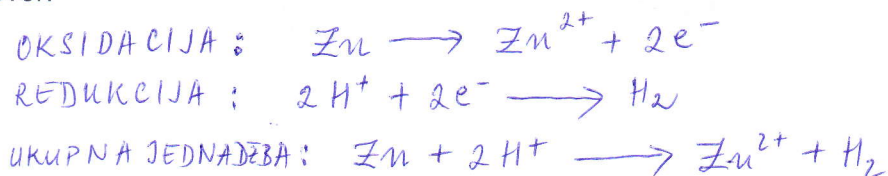 OKSIDACIJA: Zn → Zn²⁺ + 2e⁻
REDUKCIJA: 2H⁺ + 2e⁻ → H₂
UKUPNA JEDNADŽBA: Zn + 2H⁺ → Zn²⁺ + H₂